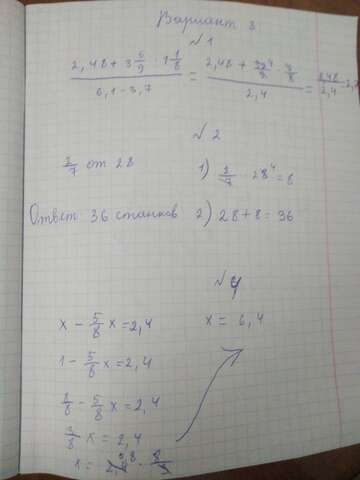 Вариант 3
№1
2,48 + 3 5/9 : 1 1/8 / 6,1 - 3,7 = 2,48 + 32⁴/9 · 9/8 / 2,4 = 6,48/2,4 = 2,
№ 2
2/7 от 28 1) 2/7 · 28⁴ = 8
Ответ 36 станков 2) 28 + 8 = 36
№ 4
x - 5/8 x = 2,4 x = 6,4
1 - 5/8 x = 2,4
8/8 - 5/8 x = 2,4
3/8 x = 2,4
x = 2,4 0,8 · 8/3